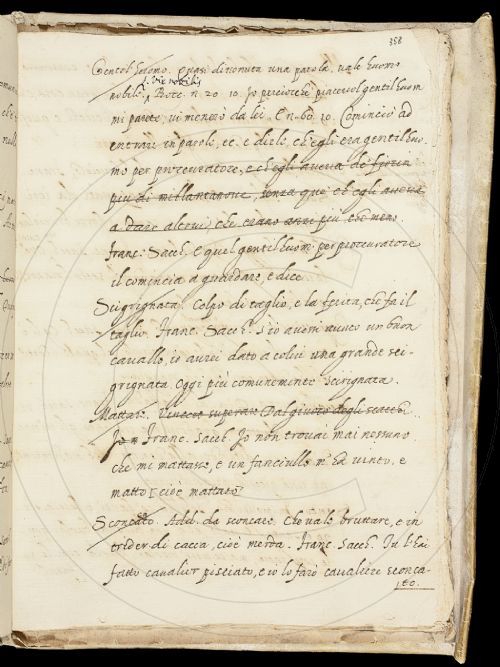 358
Gentil huomo. Quasi divenuta una parola. vale huom
l. vir nobilis
nobil. Bocc. n. 20. 10. Io perciocchè piacevol gentil huom
mi parete, vi menerò da lei. E n. 60. 10. Cominciò ad
entrare in parole, ec. e dirle, ch'egli era gentil huo
mo per procuratore, e ch'egli aveva de' fiorin
più di millantanove, senza que' ch'egli aveva
a dare altrui, che erano anzi più che meno.
Franc: Sacch. E quel gentil huom per procuratore
il comincia a guardare, e dice
Scigrignata. Colpo di taglio, e la ferita, che fa il
taglio. Franc. Sacch. S'io avessi avuto un buon
cavallo, io avrei dato a colui una grande sci-
grignata. Oggi più comunemente Scirignata.
Mattato. Vinto e superato Dal giuoco degli scacchi
Franc. Sacch. Io non trovai mai nessuno
che mi mattasse, e un fanciullo m' ha vinto, e
matto [cioè mattato
Sconcato. Add. da sconcare. Che vale bruttare, e in
trider di cacca, cioè merda. Franc. Sacch. Tu l'hai
fatto cavalier pisciato, e io lo farò cavaliere sconca-
to.